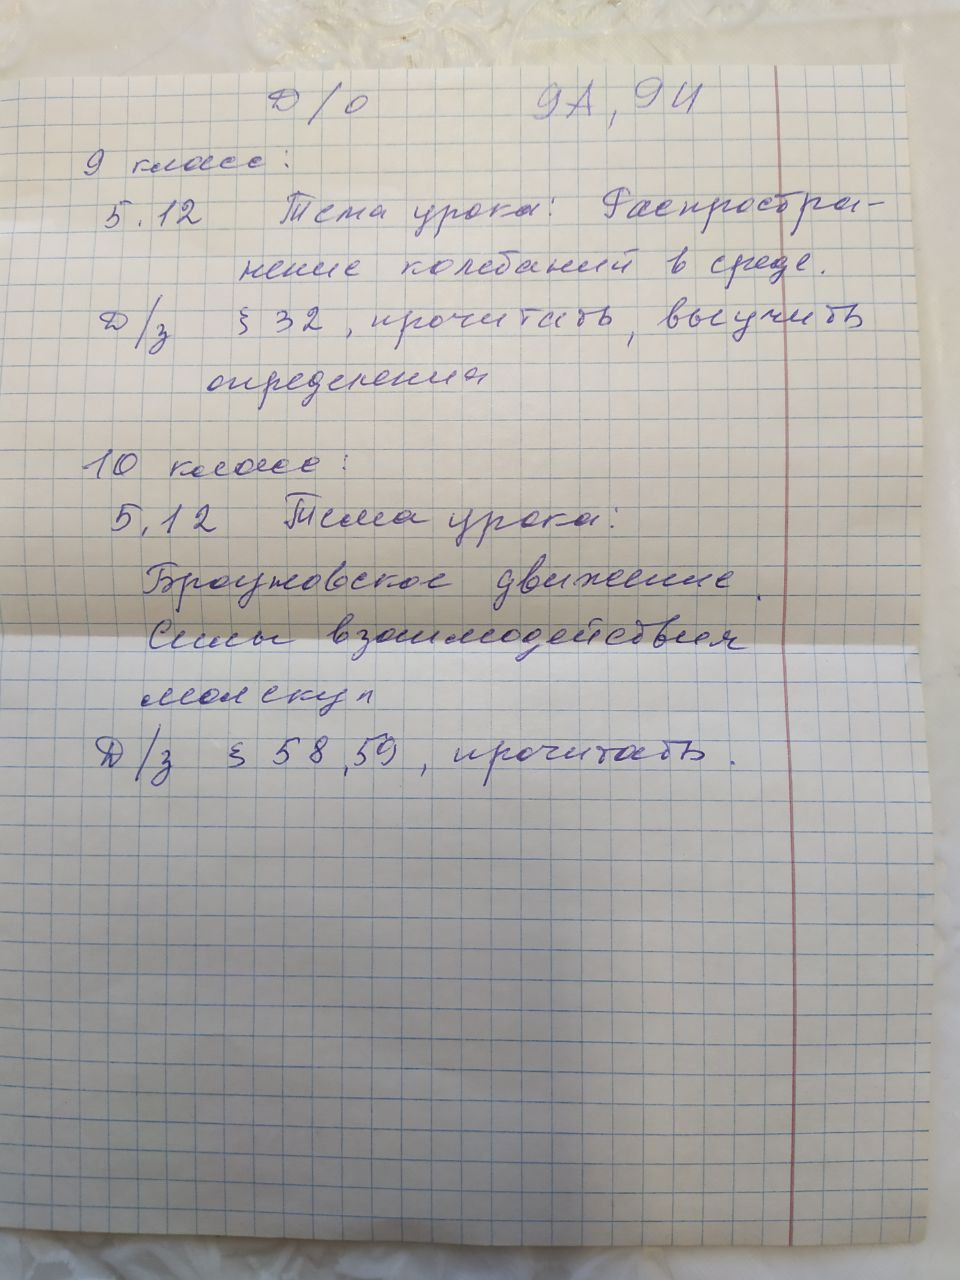 Д/о 9А, 9И
9 класс:
5.12 Тема урока: Распростра-
нение колебаний в среде.
Д/з § 32, прочитать, выучить
определения
10 класс:
5.12 Тема урока:
Броуновское движение.
Силы взаимодействия
молекул
Д/з § 58,59, прочитать.